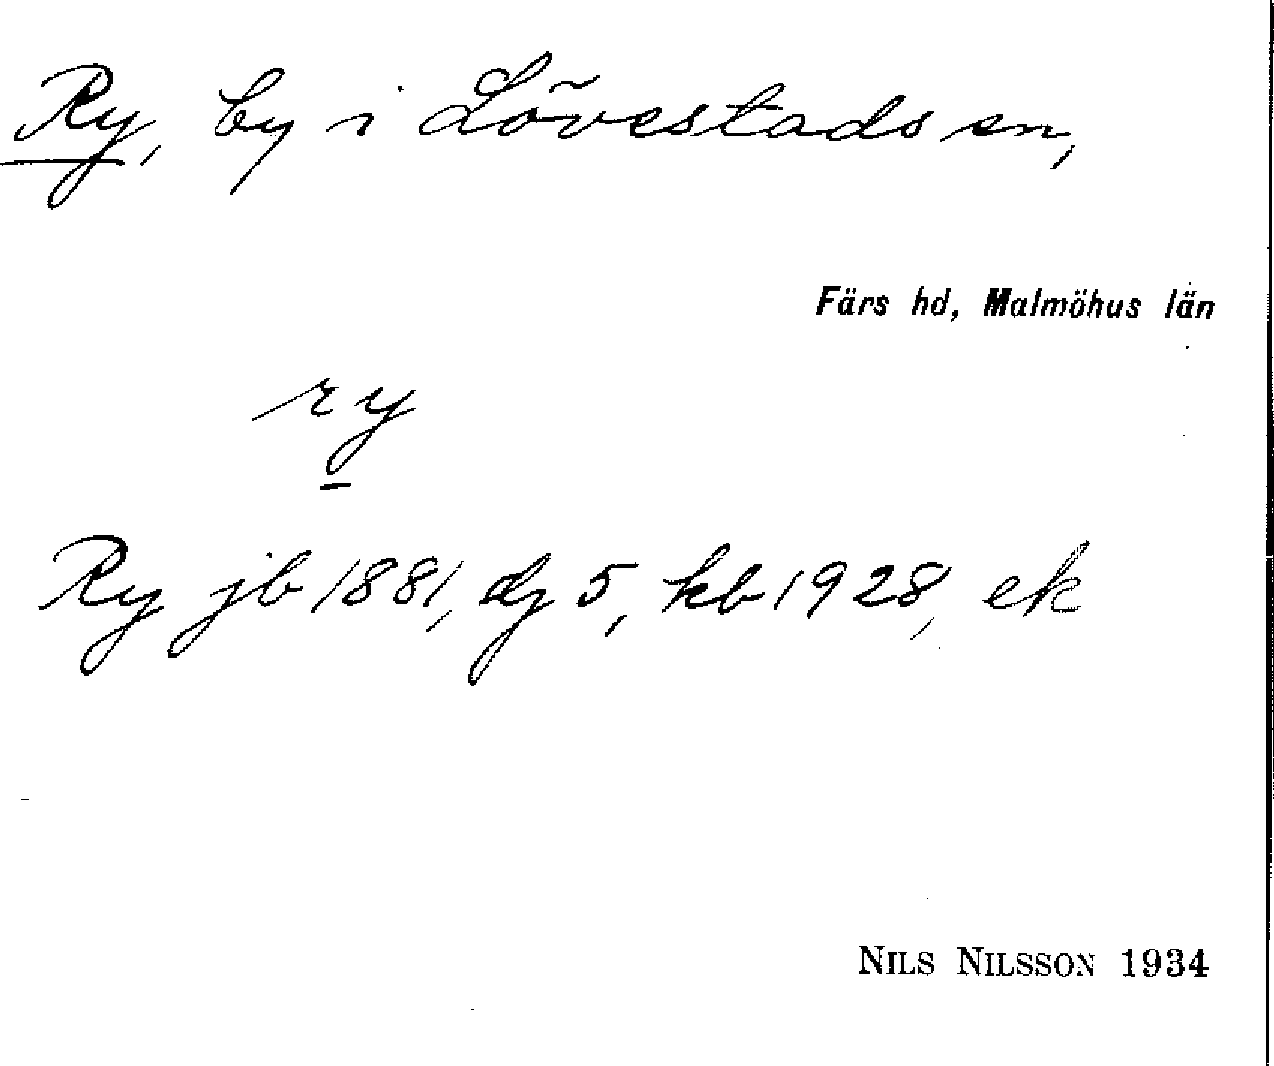 Ry, by i Lövestads sn,
Färs hd, Malmöhus län
ry
Ry jb 1881, dg 5, kb 1928, ek
NILS NILSSON 1934